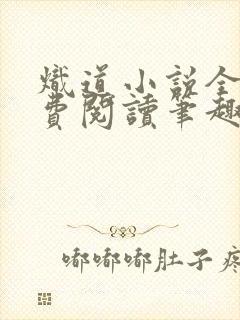 熾道小說全
費閱讀筆趣
嘟嘟嘟肚子疼